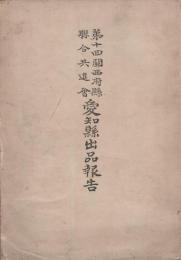 第十四回關西府縣
聯合共進會
愛知縣出品報告